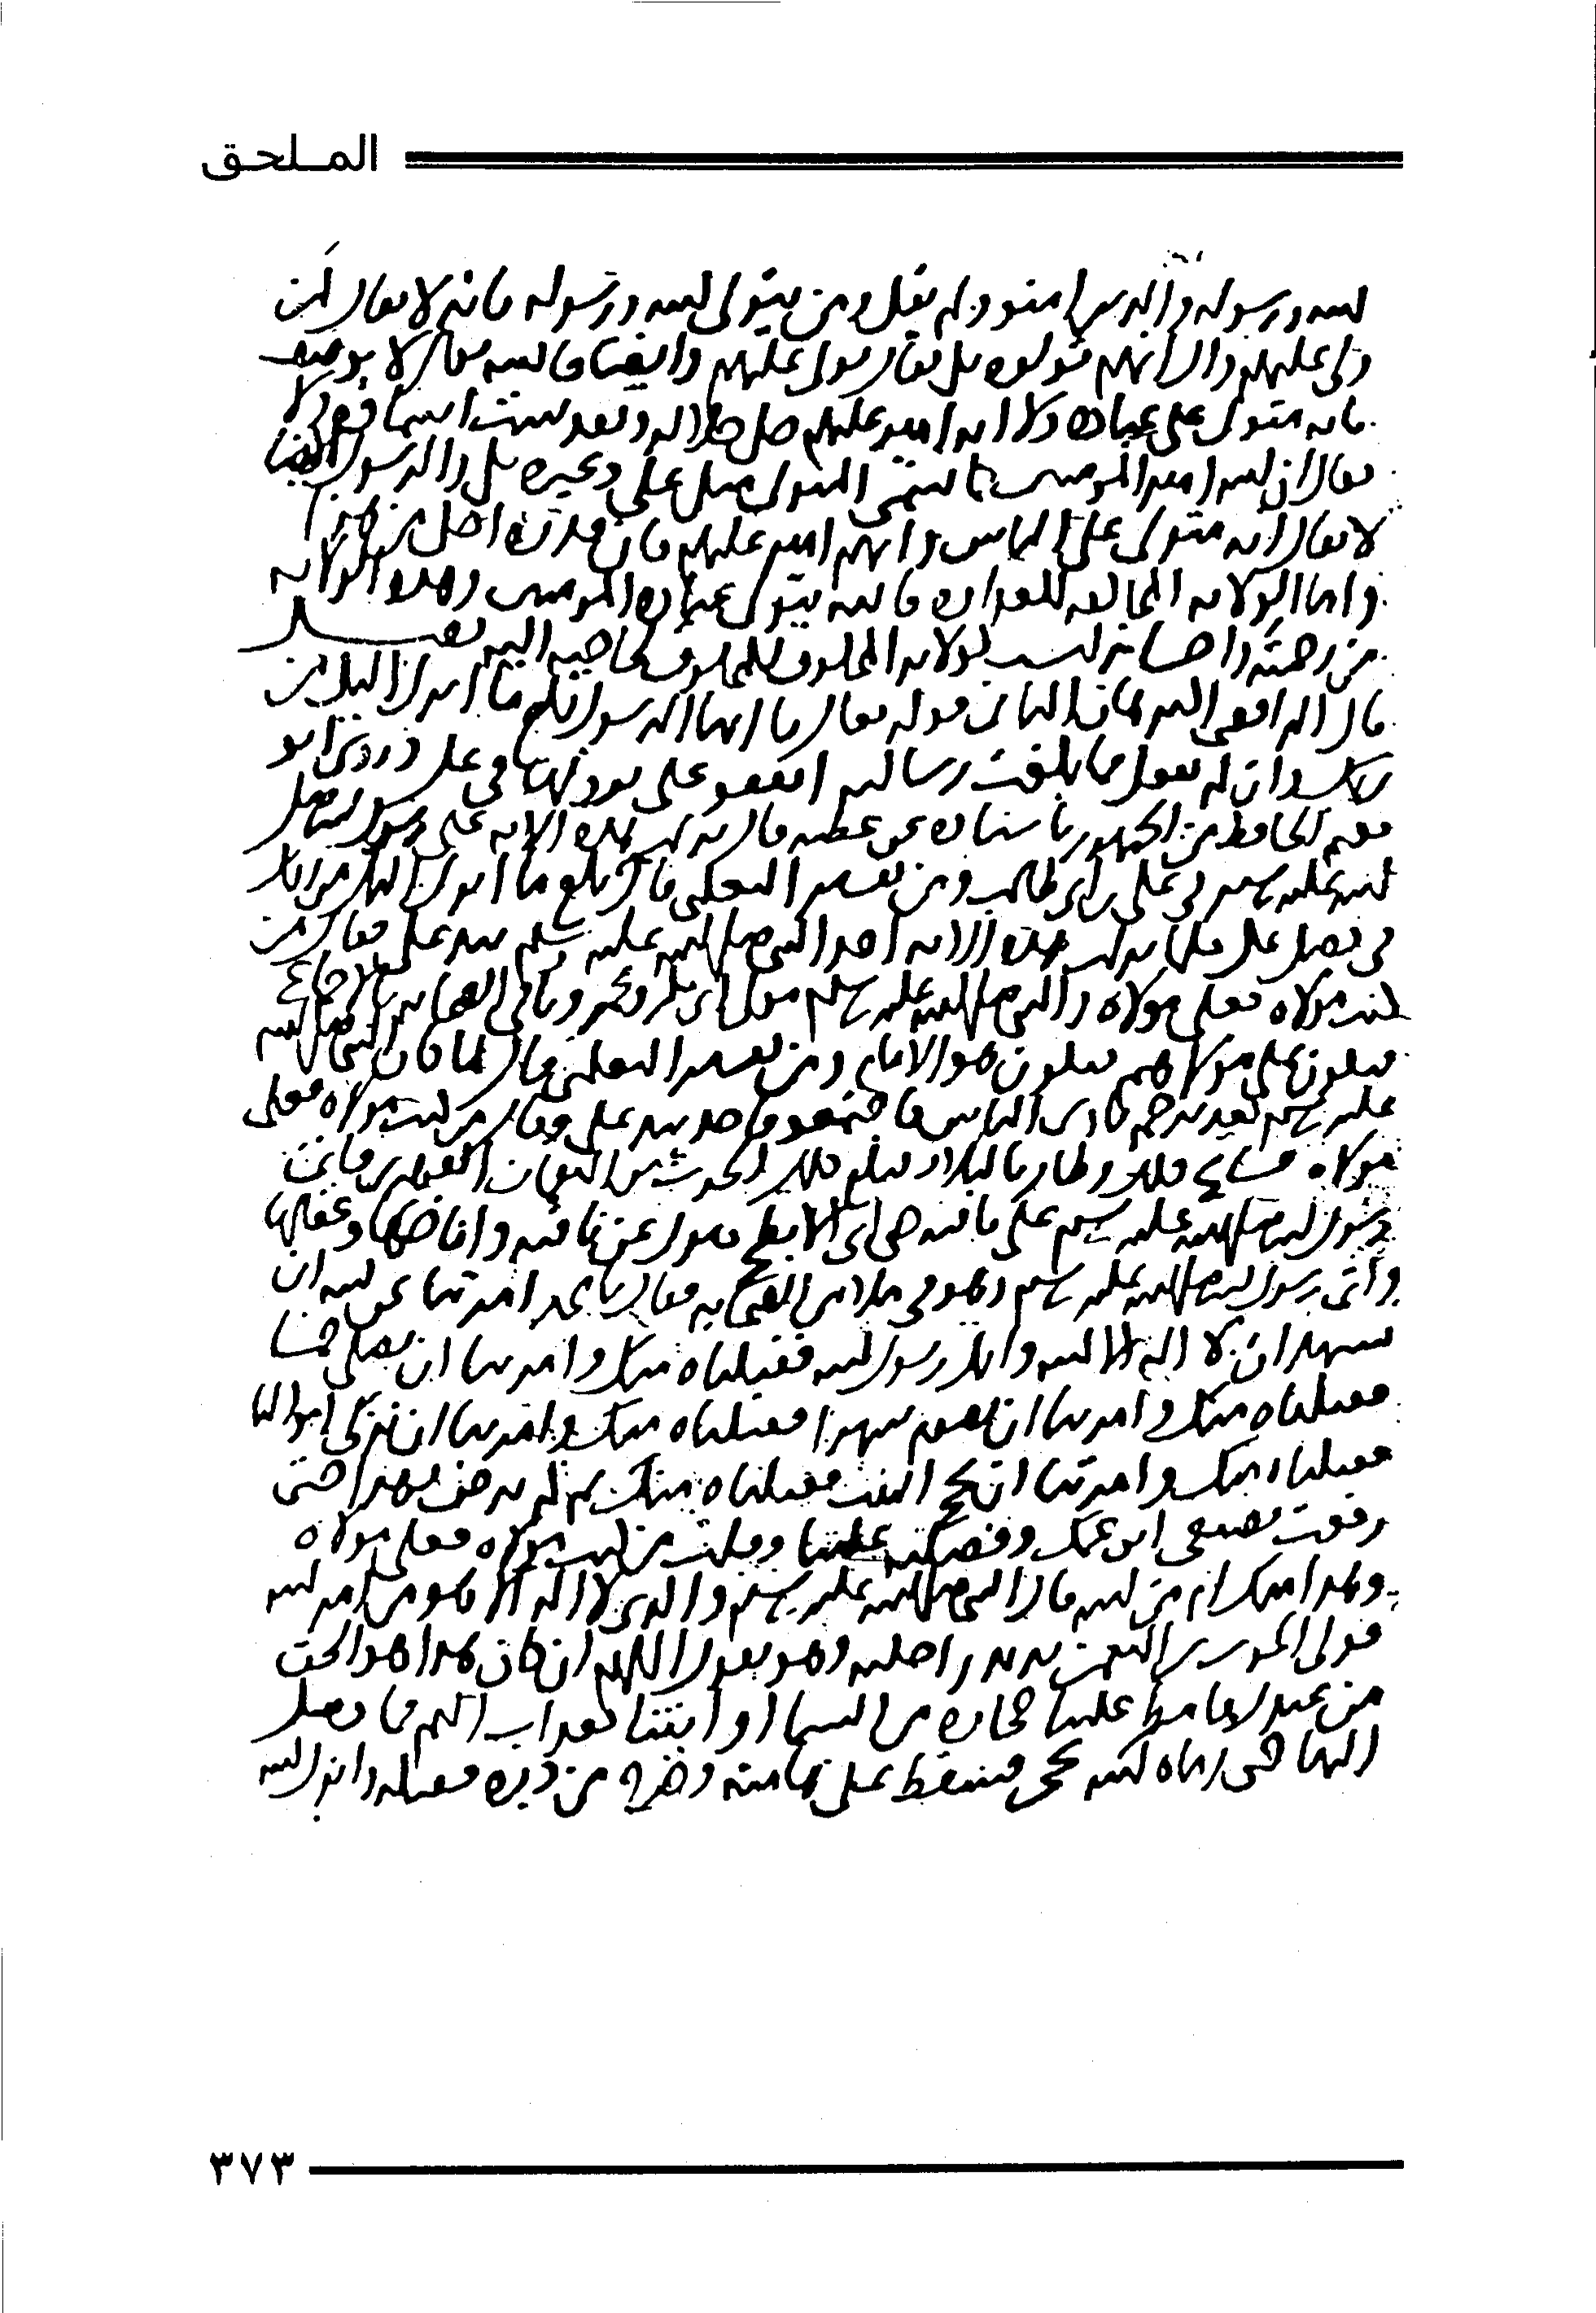 الملحق
لله ورسوله والذين امنوا ولم يقل ومن يتولى الله ورسوله فانه لا يقال لمن
ولي عليهم وال انهم تولوه بل يقال تولى عليهم وايضا فالله تعالى لا يوصف
بانه متول على عباده ولا انه امير عليهم جل جلاله وتقدست اسماؤه ولا
يقال ان الله امير المومنين كما يسمى المتولي مثل علي وغيره بل والرسول ايضا
لا يقال انه متولي على الناس وانه امير عليهم فان قدره اجل من هذا
واما الولاية المخالفة للعداوة فالله يتولى عباده المومنين وهذه الولاية
من رحمته واحسانه ليست كولاية المخلوق للمخلوق لحاجته اليه فصل
قال الرافضي البرهان الثاني قوله تعالى يا ايها الرسول بلغ ما انزل اليك من
ربك وان لم تفعل فما بلغت رسالته اتفقوا على نزولها في علي وروى ابو
نعيم الحافظ من الجمهور باسناده عن عطية قال نزلت هذه الاية على رسول الله صلى
الله عليه وسلم في علي بن ابي طالب ومن تفسير الثعلبي قال بلغ ما انزل اليك من ربك
في فضل علي فلما نزلت هذه الاية اخذ النبي صلى الله عليه وسلم بيد علي فقال من
كنت مولاه فعلي مولاه والنبي صلى الله عليه وسلم مولى ابي بكر وعمر وباقي الصحابة بالاجماع
فيكون علي مولاهم فيكون هو الامام ومن تفسير الثعلبي قال لما كان النبي صلى الله
عليه وسلم بغدير خم نادى الناس فاجتمعوا فاخذ بيد علي وقال من كنت مولاه فعلي
مولاه فشاع ذلك وطار بالبلاد فبلغ ذلك الحرث بن النعمان الفهري فاتى
رسول الله صلى الله عليه وسلم على ناقته حتى اتى الابطح فنزل عن ناقته واناخها وعقلها
واتى رسول الله صلى الله عليه وسلم وهو في ملا من الصحابة فقال يا محمد امرتنا عن الله ان
نشهد ان لا اله الا الله وانك رسول الله فقبلناه منك وامرتنا ان نصلي خمسا
فقبلناه منك وامرتنا ان نصوم شهرا فقبلناه منك وامرتنا ان نزكي اموالنا
فقبلناه منك وامرتنا ان نحج البيت فقبلناه منك ثم لم ترض بهذا حتى
رفعت بضبعي ابن عمك وفضلته علينا وقلت من كنت مولاه فعلي مولاه
وهذا منك ام من الله قال النبي صلى الله عليه وسلم والذي لا اله الا هو من امر الله
فولى الحرث بن النعمن يريد راحلته وهو يقول اللهم ان كان هذا هو الحق
من عندك فامطر علينا حجارة من السما او ائتنا بعذاب اليم فما وصل
اليها حتى رماه الله بحجر فسقط على هامته وخرج من دبره فقتله وانزل الله
٣٧٣